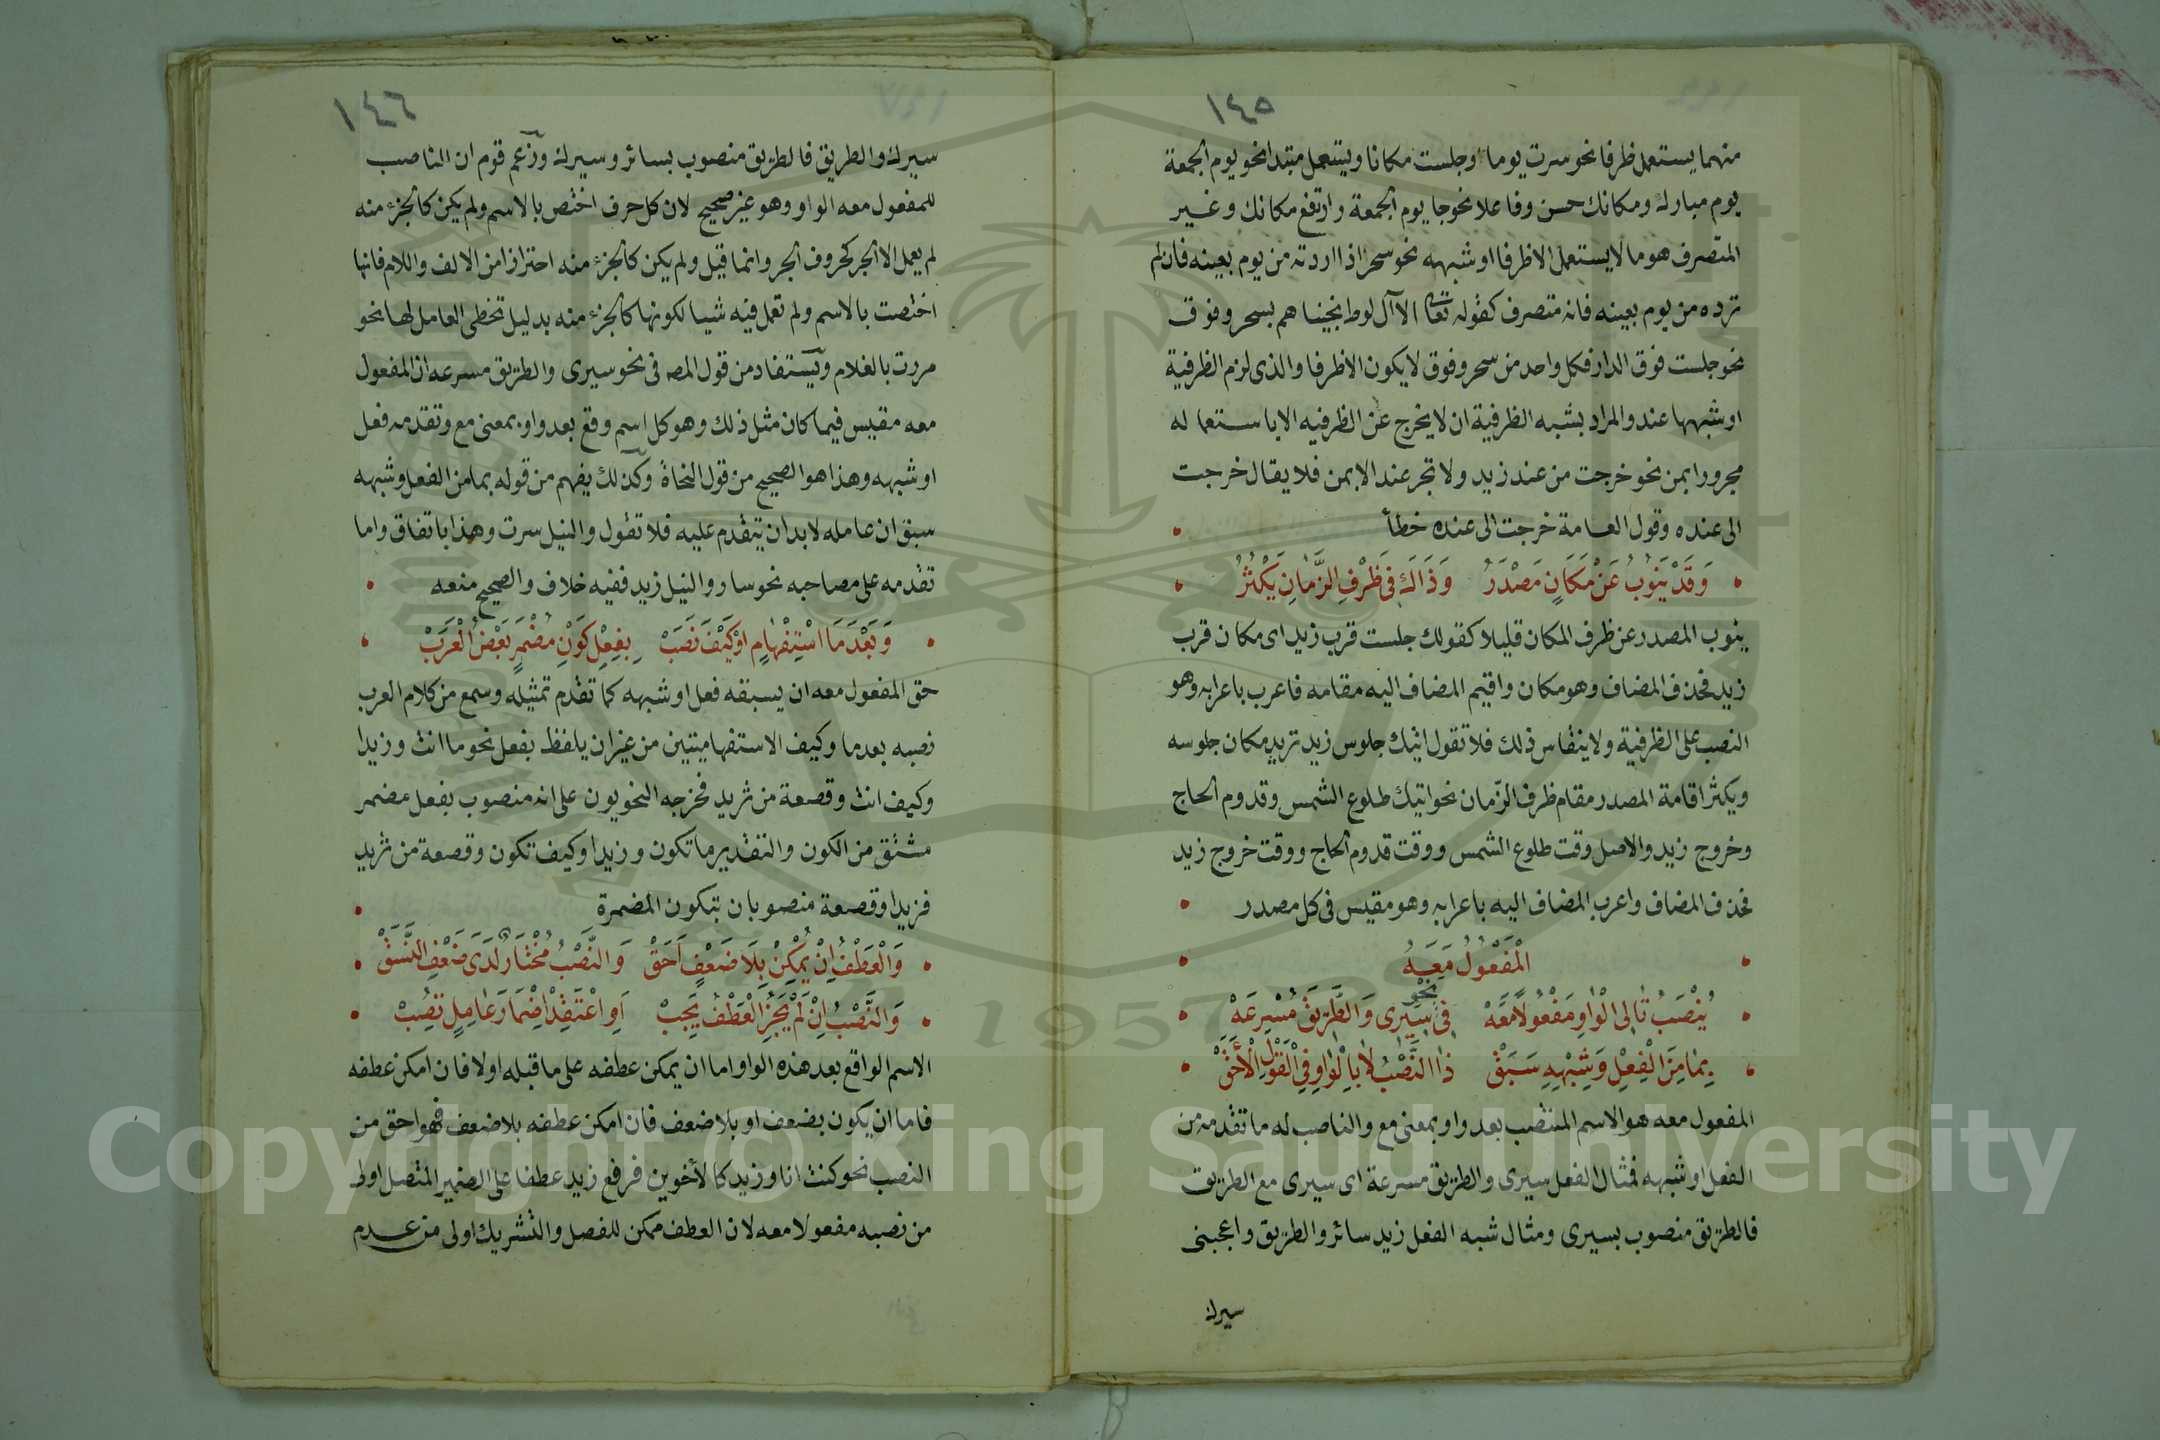 ١٤٥
منهما يستعمل ظرفا نحو سرت يوما وجلست مكانا ويستعمل مبتدا نحو يوم الجمعة
يوم مبارك ومكانك حسن وفاعلا نحو جا يوم الجمعة وارتفع مكانك وغير
المتصرف هو ما لا يستعمل الا ظرفا او شبهه نحو سحر اذا اردته من يوم بعينه فان لم
ترده من يوم بعينه فانه متصرف كقوله تعا الا آل لوط نجيناهم بسحر وفوق
نحو جلست فوق الدار فكل واحد من سحر وفوق لا يكون الا ظرفا والذى لزم الظرفية
او شبهها عند والمراد بشبه الظرفية ان لا يخرج عن الظرفيه الا باستعماله
مجرورا بمن نحو خرجت من عند زيد ولا تجر عند الا بمن فلا يقال خرجت
الى عنده وقول العامة خرجت الى عنده خطأ
وَقَدْ يَنُوبُ عَنْ مَكَانٍ مَصْدَرُ وَذَاكَ فِى ظَرْفِ الزَّمَانِ يَكْثُرُ
ينوب المصدر عن ظرف المكان قليلا كقولك جلست قرب زيد اى مكان قرب
زيد فحذف المضاف وهو مكان واقيم المضاف اليه مقامه فاعرب باعرابه وهو
النصب على الظرفية ولا ينقاس ذلك فلا تقول اتيك جلوس زيد تريد مكان جلوسه
ويكثر اقامة المصدر مقام ظرف الزمان نحو اتيك طلوع الشمس وقدوم الحاج
وخروج زيد والاصل وقت طلوع الشمس ووقت قدوم الحاج ووقت خروج زيد
فحذف المضاف واعرب المضاف اليه باعرابه وهو مقيس فى كل مصدر
الْمَفْعُولُ مَعَهُ
يُنْصَبُ تَالِى الْوَاوِ مَفْعُولًا مَعَهْ فِى نحو سِيْرِى وَالطَّرِيْقَ مُسْرِعَهْ
بِمَا مِنَ الْفِعْلِ وَشِبْهِهِ سَبَقْ ذَا النَّصْبُ لَا بِالْوَاوِ فِى الْقَوْلِ الْأَحَقّْ
المفعول معه هو الاسم المنتصب بعد واو بمعنى مع والناصب له ما تقدمه من
الفعل او شبهه فمثال الفعل سيرى والطريق مسرعة اى سيرى مع الطريق
فالطريق منصوب بسيرى ومثال شبه الفعل زيد سائر والطريق واعجبنى
سيرك
١٤٦
سيرك والطريق فالطريق منصوب بسائر وسيرك وزعم قوم ان الناصب
للمفعول معه الواو وهو غير صحيح لان كل حرف اختص بالاسم ولم يكن كالجزء منه
لم يعمل الا الجر كحروف الجر وانما قيل ولم يكن كالجزء منه احترازا من الالف واللام فانها
اختصت بالاسم ولم تعمل فيه شيا لكونها كالجزء منه بدليل تخطى العامل لها نحو
مررت بالغلام ويستفاد من قول المصـ فى نحو سيرى والطريق مسرعه ان المفعول
معه مقيس فيما كان مثل ذلك وهو كل اسم وقع بعد واو بمعنى مع وتقدمه فعل
او شبهه وهذا هو الصحيح من قول النحاة وكذلك يفهم من قوله بما من الفعل وشبهه
سبق ان عامله لا بد ان يتقدم عليه فلا تقول والنيل سرت وهذا باتفاق واما
تقدمه على مصاحبه نحو سار والنيل زيد ففيه خلاف والصحيح منعه
وَبَعْدَ مَا اسْتِفْهَامٍ اوْ كَيْفَ نَصَبْ بِفِعْلِ كَوْنٍ مُضْمَرٍ بَعْضُ الْعَرَبْ
حق المفعول معه ان يسبقه فعل او شبهه كما تقدم تمثيله وسمع من كلام العرب
نصبه بعد ما وكيف الاستفهاميتين من غير ان يلفظ بفعل نحو ما انت وزيدا
وكيف انت وقصعة من ثريد فخرجه النحويون على انه منصوب بفعل مضمر
مشتق من الكون والتقدير ما تكون وزيدا وكيف تكون وقصعة من ثريد
فزيدا وقصعة منصوبان بتكون المضمرة
وَالْعَطْفُ اِنْ يُمْكِنْ بِلَا ضَعْفٍ اَحَقْ وَالنَّصْبُ مُخْتَارٌ لَدَى ضَعْفِ النَّسَقْ
وَالنَّصْبُ اِنْ لَمْ يَجُزِ الْعَطْفُ يَجِبْ اَوِ اعْتَقِدْ اِضْمَارَ عَامِلٍ تُصِبْ
الاسم الواقع بعد هذه الواو اما ان يمكن عطفه على ما قبله او لا فان امكن عطفه
فاما ان يكون بضعف او بلا ضعف فان امكن عطفه بلا ضعف فهو احق من
النصب نحو كنت انا وزيد كالأخوين فرفع زيد عطفا على الضمير المتصل اولى
من نصبه مفعولا معه لان العطف ممكن للفصل والتشريك اولى من عدم
Copyright © King Saud University
1957